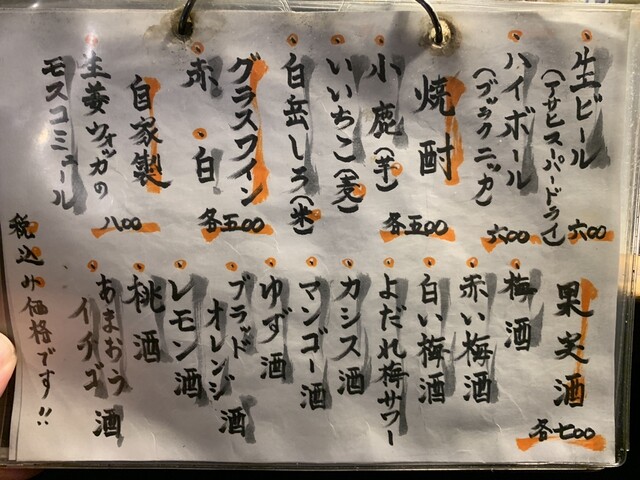 生ビール
(アサヒスーパードライ)
六00
ハイボール
(ブラックニッカ)
六00
焼酎
小鹿(芋)
各五00
いいちこ(麦)
白岳しろ(米)
グラスワイン
各五00
赤
白
自家製
八00
生姜ウォッカの
モスコミュール
果実酒
各七00
梅酒
赤い梅酒
白い梅酒
よだれ梅サワー
カシス酒
マンゴー酒
ゆず酒
ブラッド
オレンジ酒
レモン酒
桃酒
あまおう
イチゴ酒
税込み価格です!!